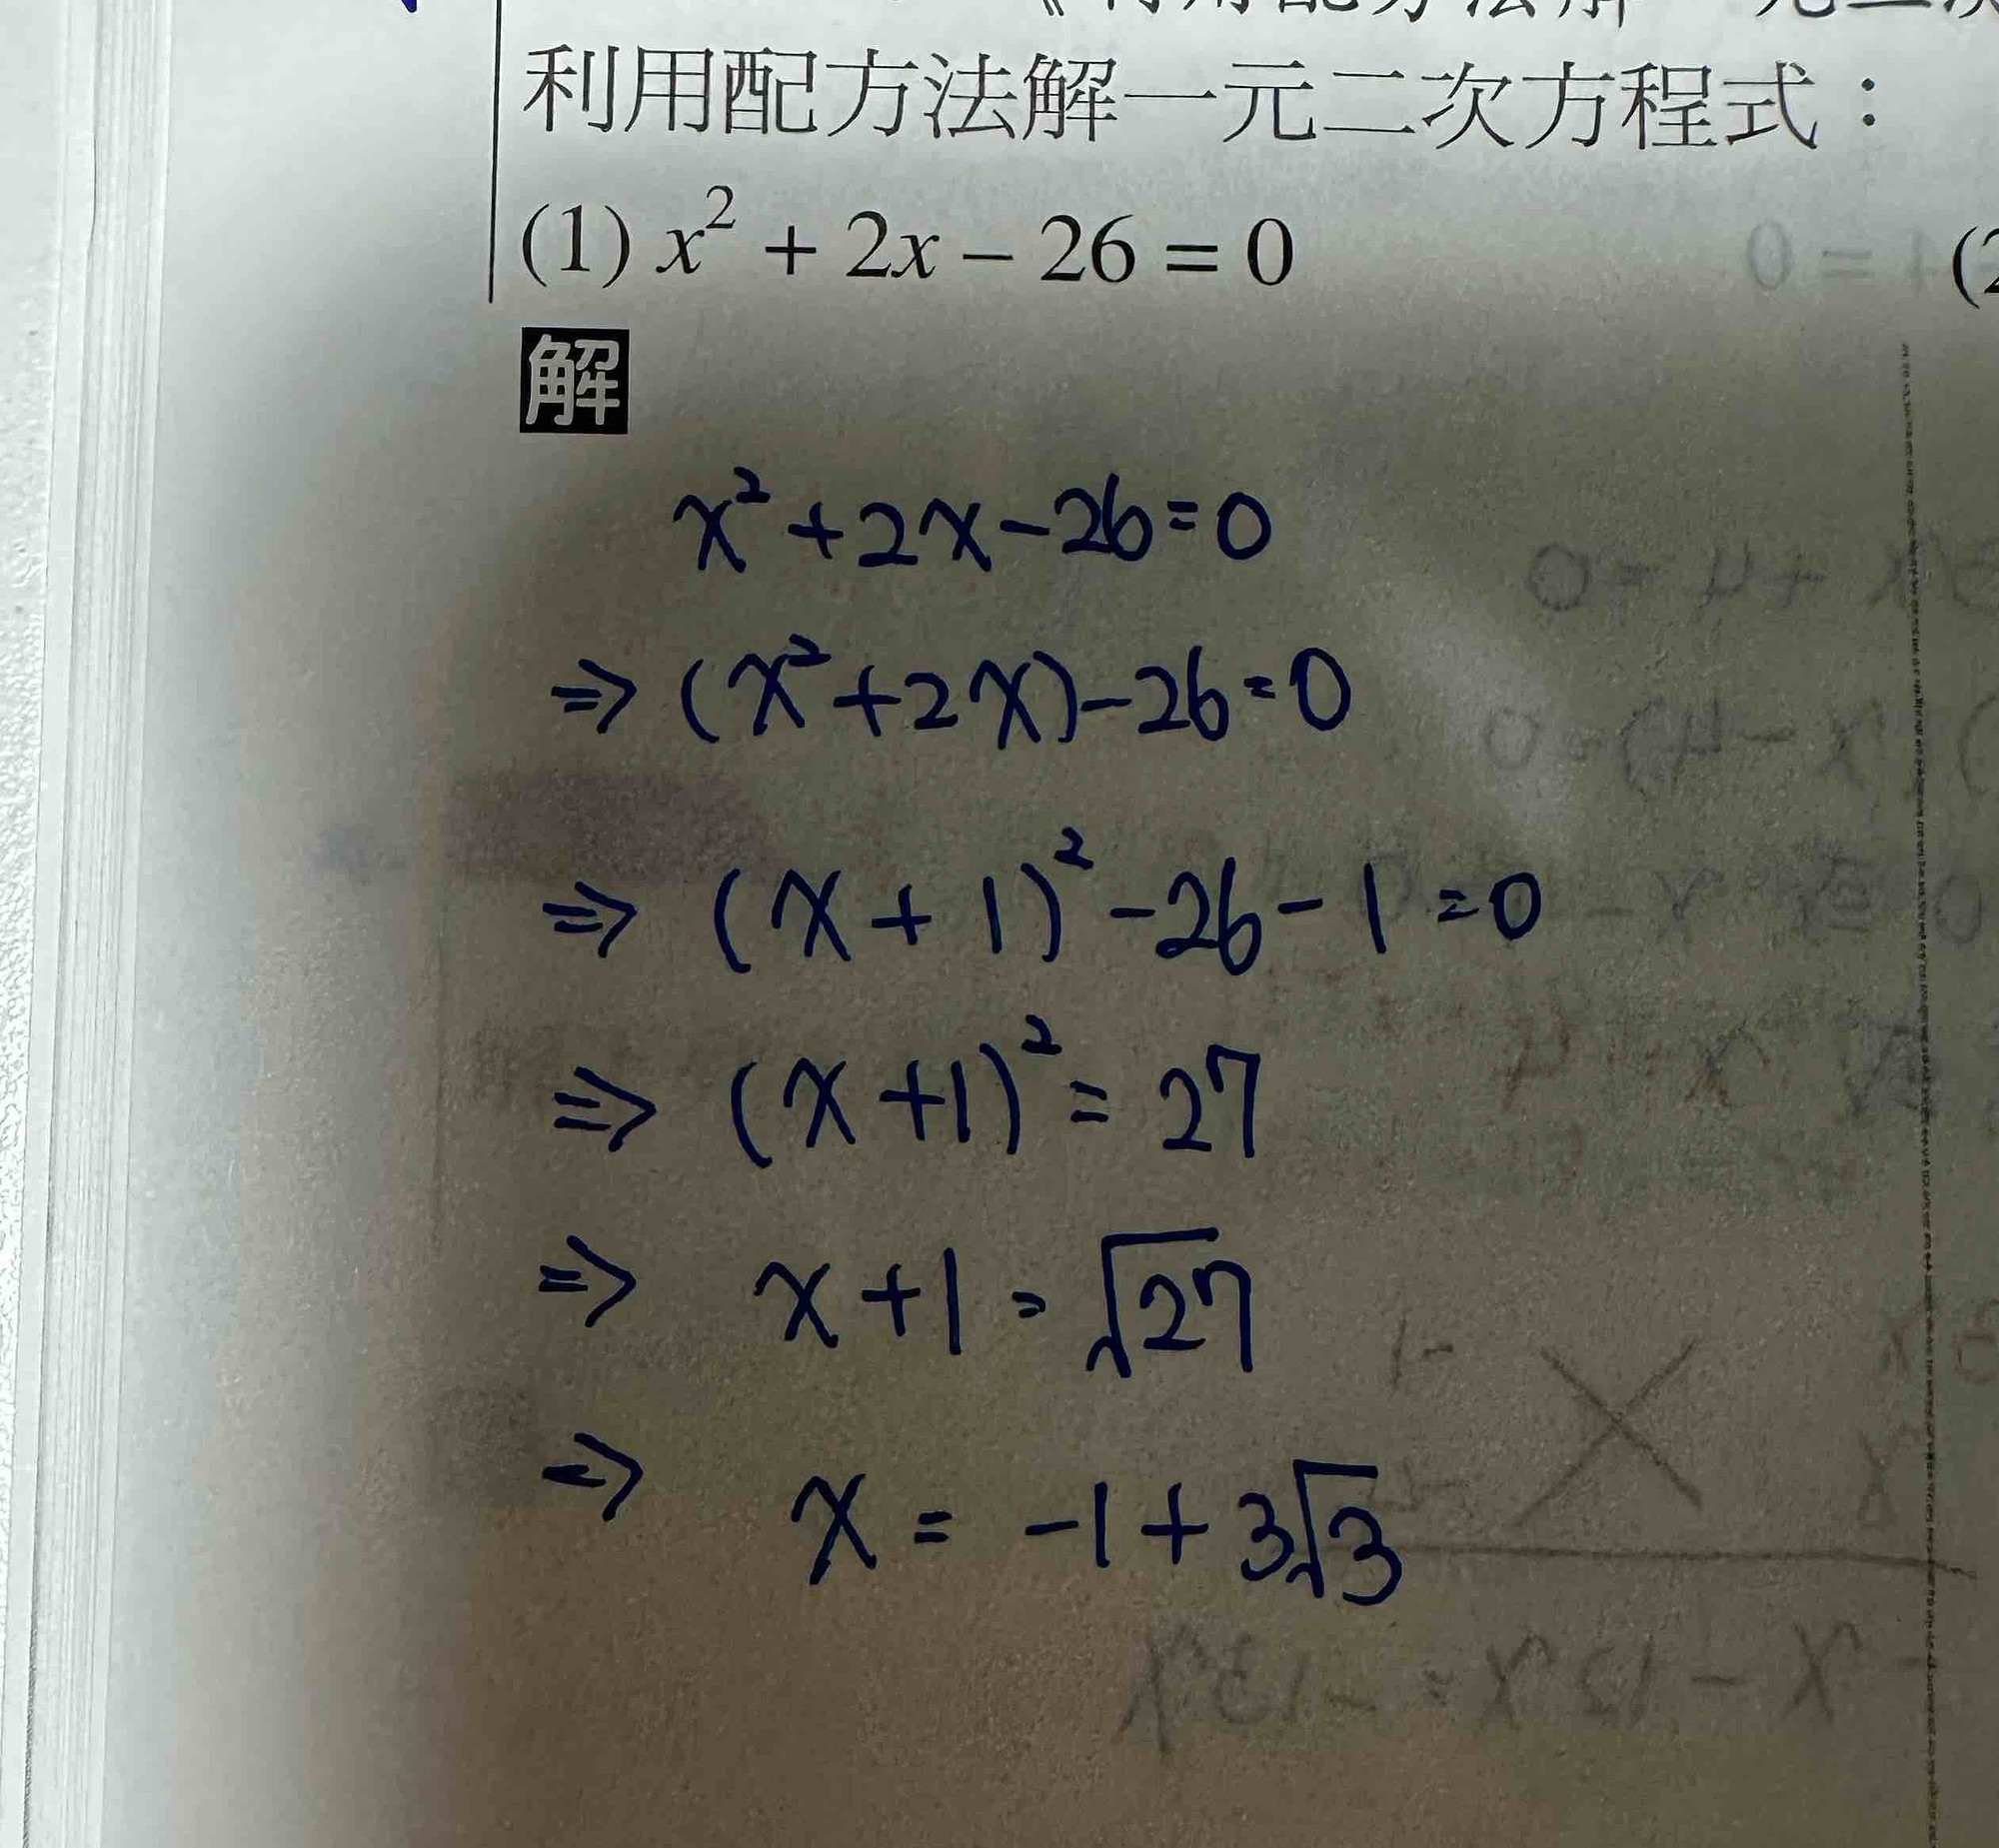 利用配方法解一元二次方程式：
(1) x² + 2x – 26 = 0
解
x² + 2x - 26 = 0
⇒ (x² + 2x) - 26 = 0
⇒ (x + 1)² - 26 - 1 = 0
⇒ (x + 1)² = 27
⇒ x + 1 = √27
⇒ x = -1 + 3√3